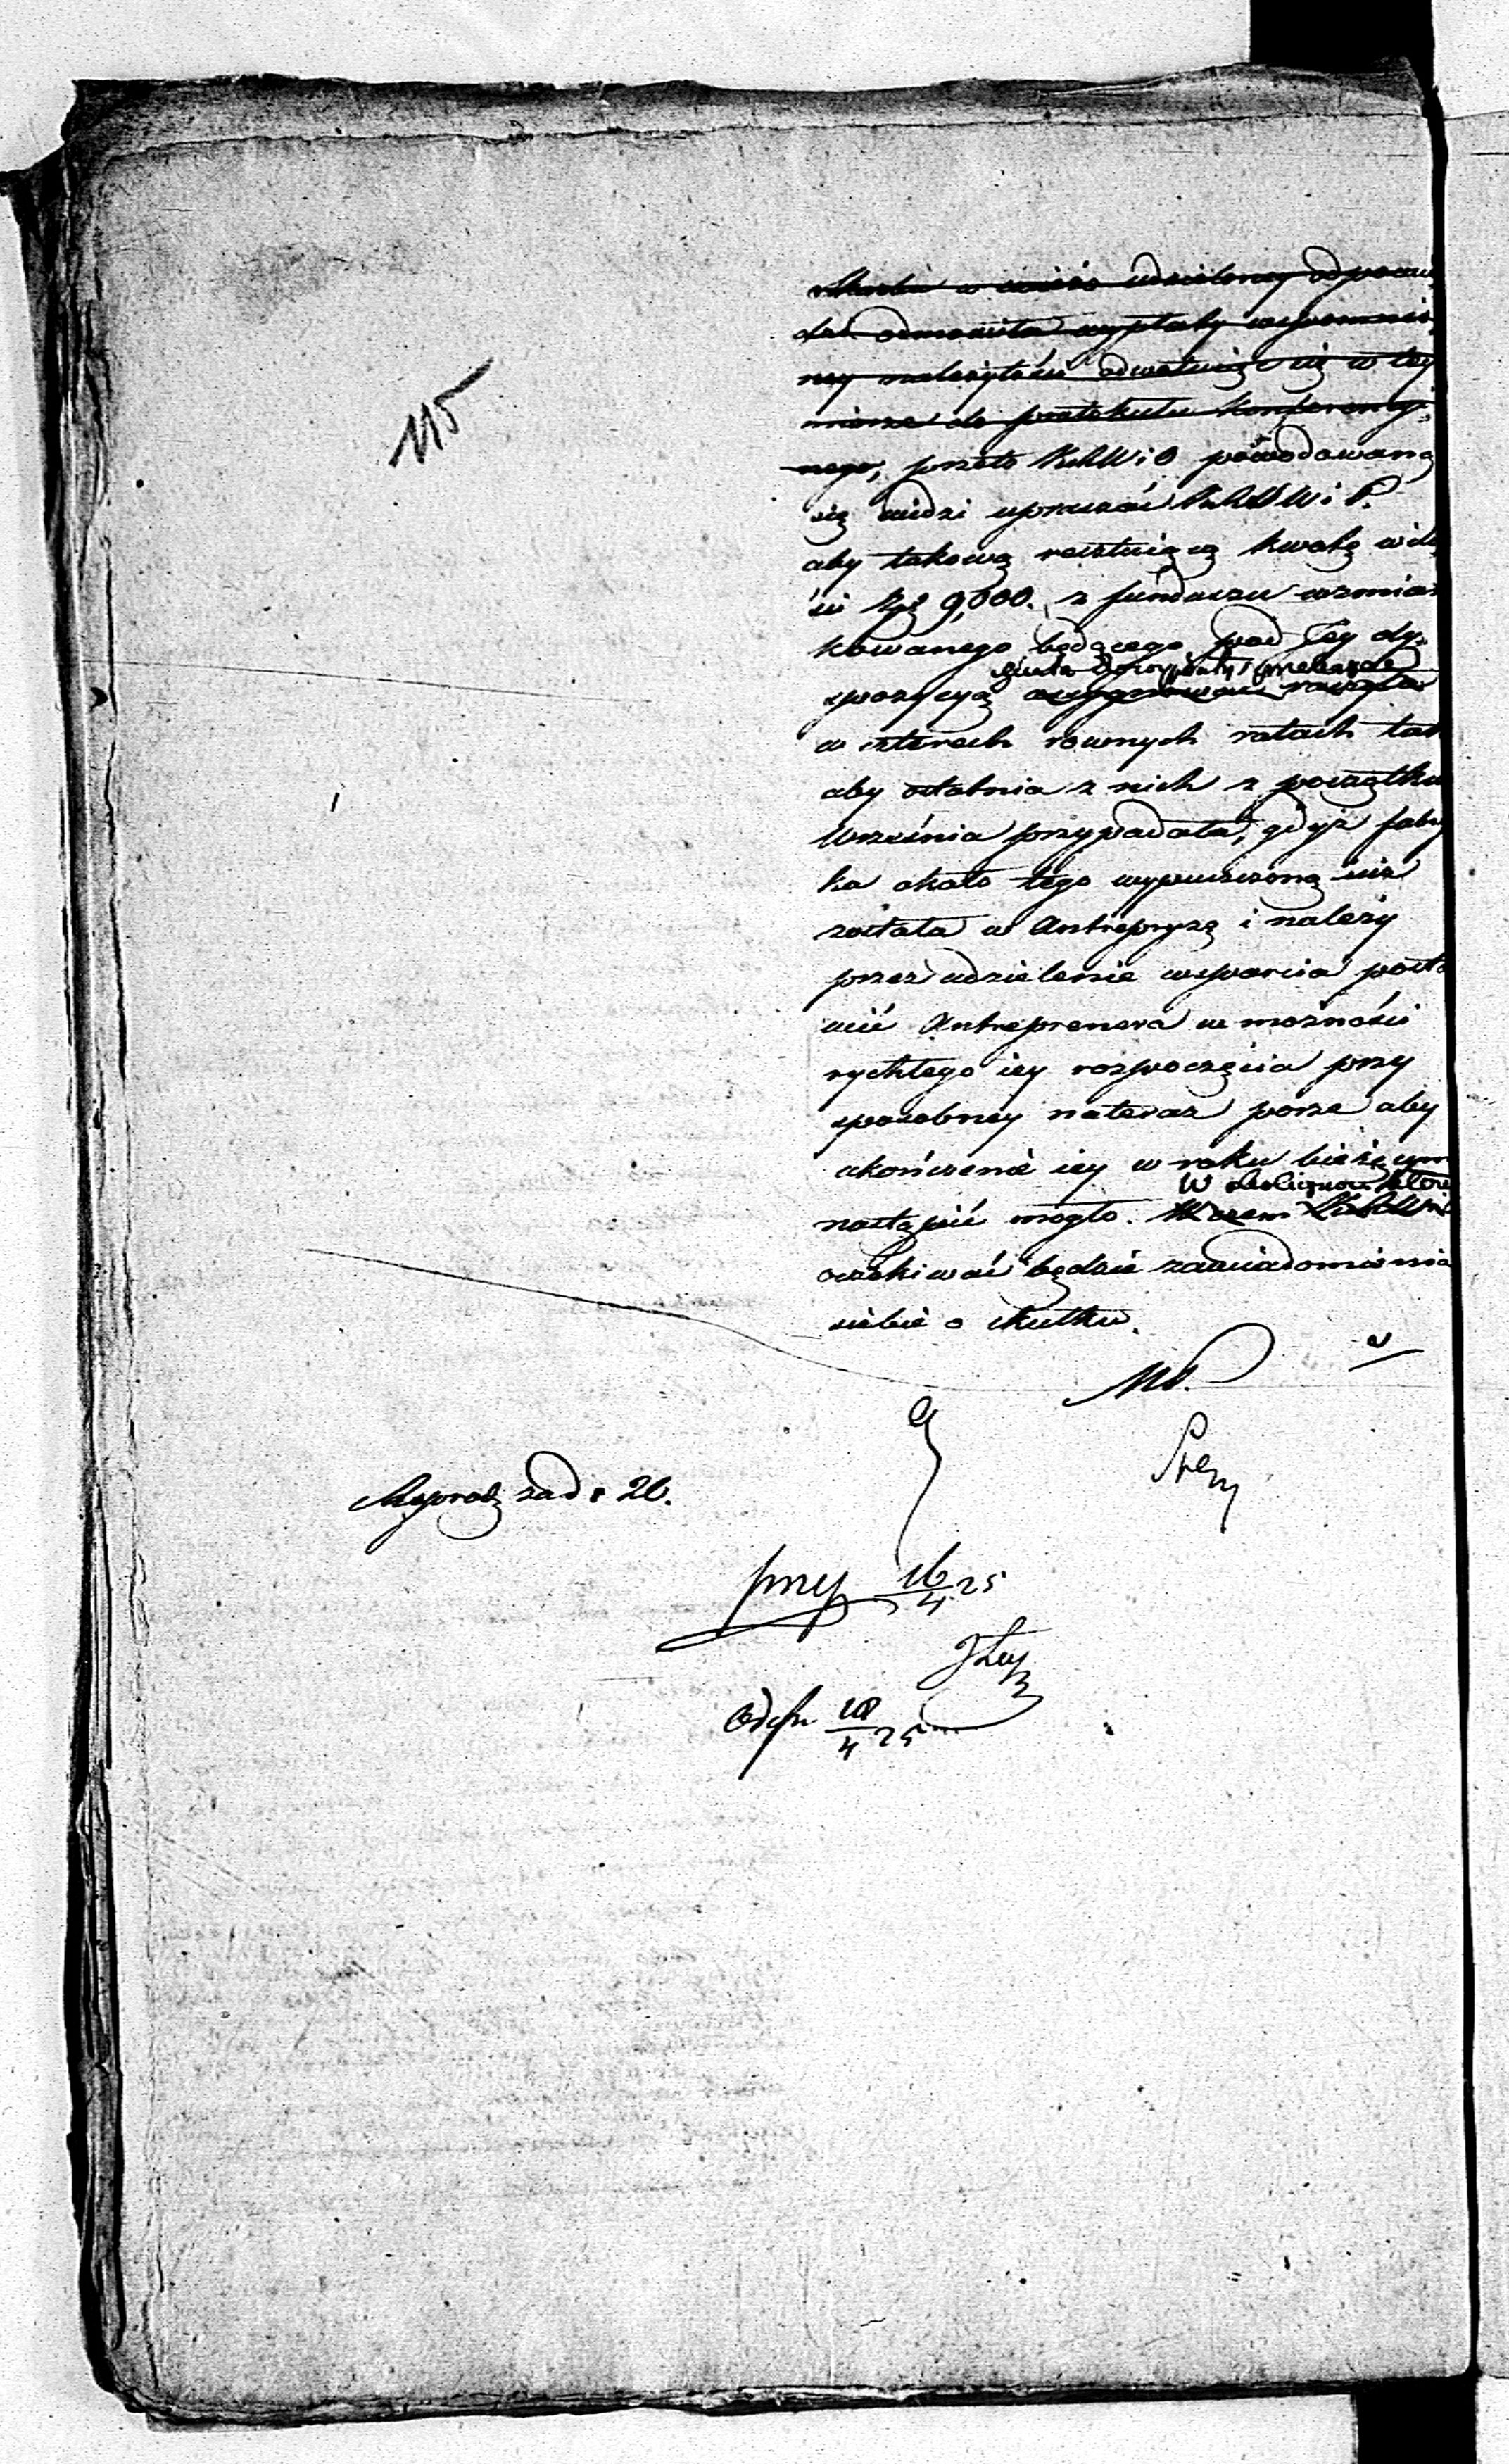 115
w udzieloney odpowie
dzi odmówiła wypłaty wspomnio
ney należytości odwołuiąc się w tey
mierze do protokułu konferency
nego, przeto KRWiO powodowaną
się widzi upraszać KRSWiP.
aby takową resztuiącą kwotę w ilo
ści Złp 9,000. z funduszu wzmian
kowanego będącego pod Jey dy
spozycyą
w czterech rownych ratach tak
aby ostatnia z nich z początku
Września przypadała, gdyż fabry
ka około tego wypuszczoną iuż
została w Antrepryzę i należy
przez udzielenie wsparcia posta
wić Antreprenera w możności
rychłego iey rozpoczęcia przy
sposobney nateraz porze aby
ukończenie iey w roku bieżącym
nastąpić mogło.
oczekiwać będzie zawiadomienia
siebie o skutku.
20.
przy 16/4 25
18/4 25